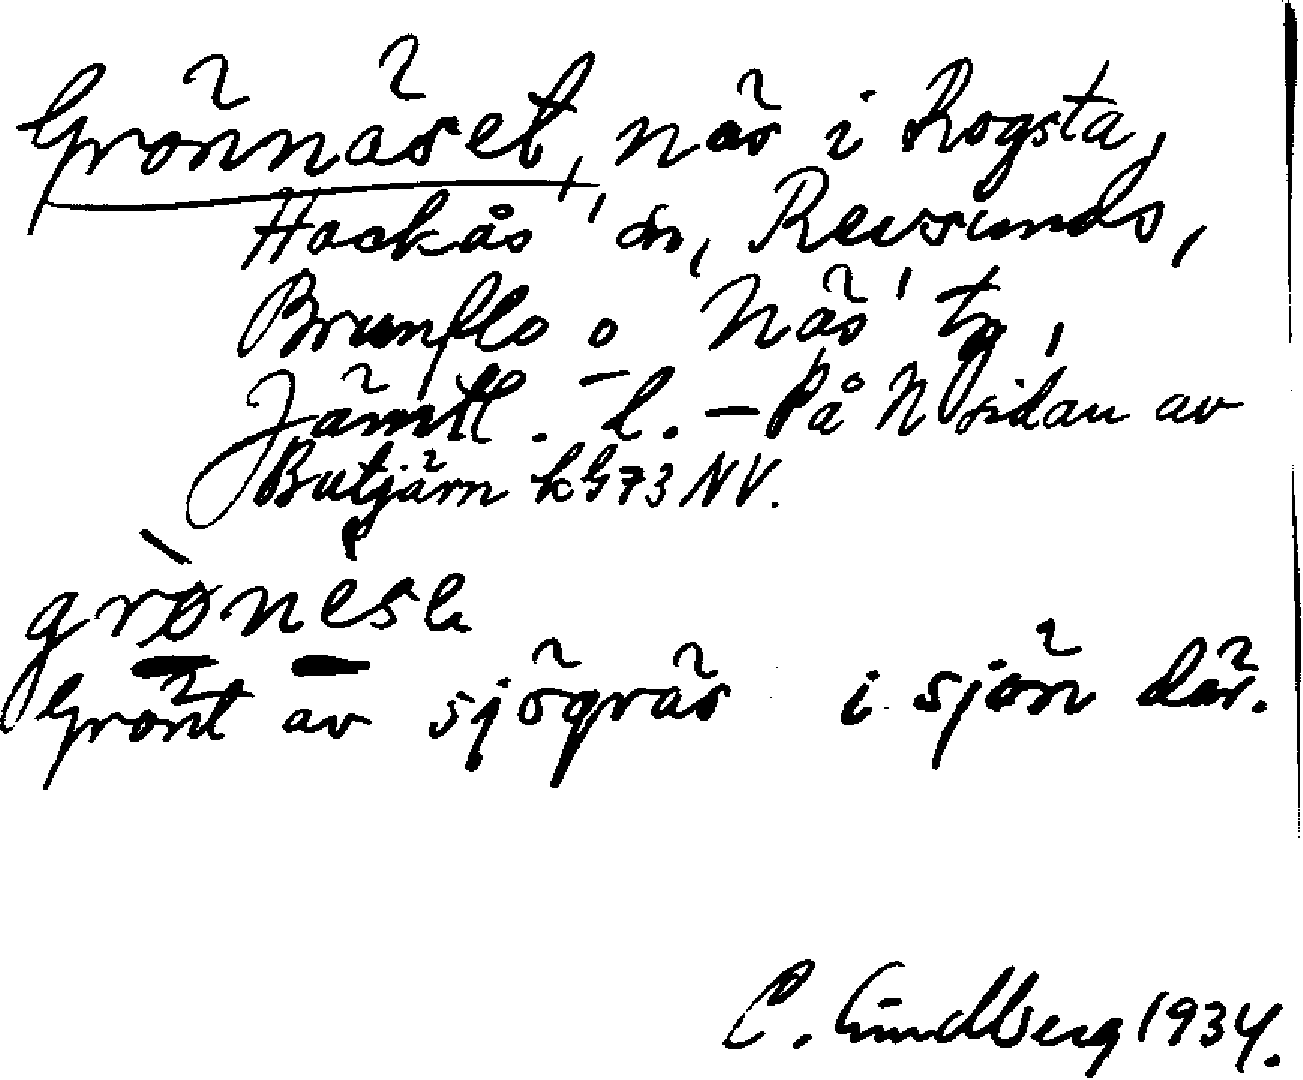 Grönnäset, näs i Rogsta,
Hackås sn, Revsunds,
Brunflo o Näs tg,
Jämtl. l. – På N sidan av
Butjärn kG73 NV.
grønesε
Grönt av sjögräs i sjön där.
C. Lindberg 1934.